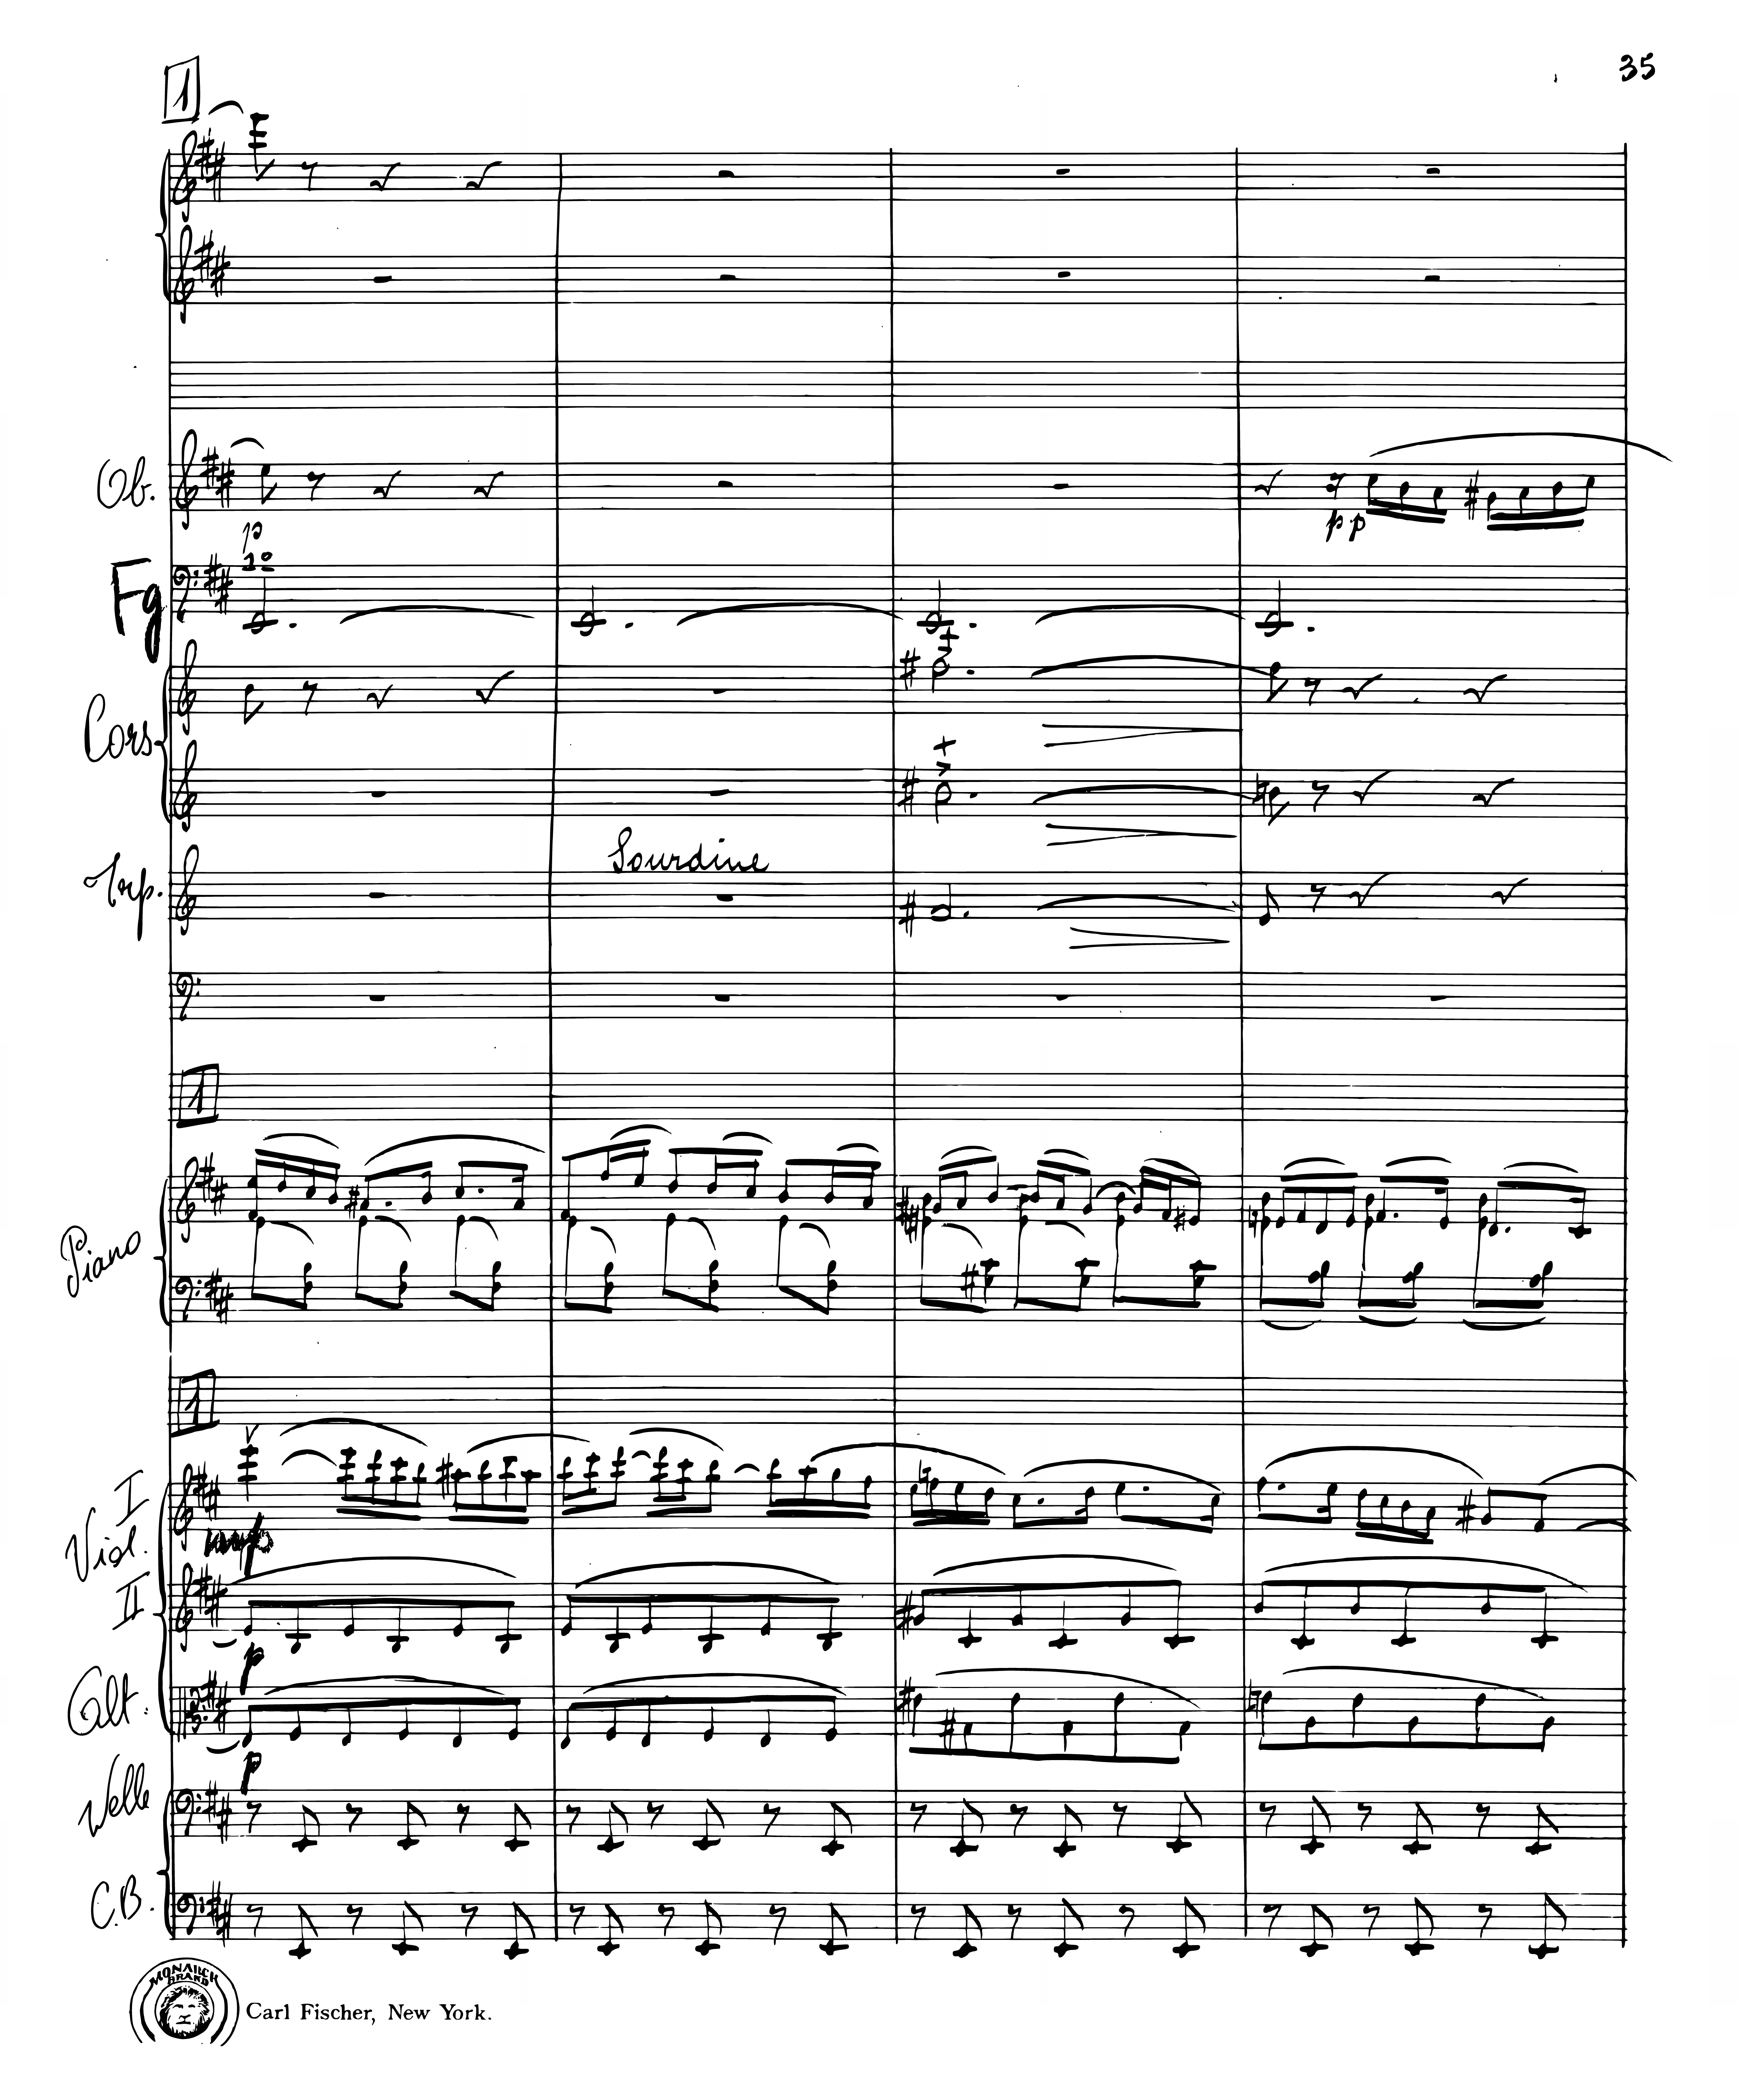 35
1
Ob.
p
pp
1º
Fg
Cors
Sourdine
Trp.
1
Piano
1
I
Viol.
mp
II
p
Alt.
p
Velle
C.B.
MONARCH
BRAND
Carl Fischer, New York.